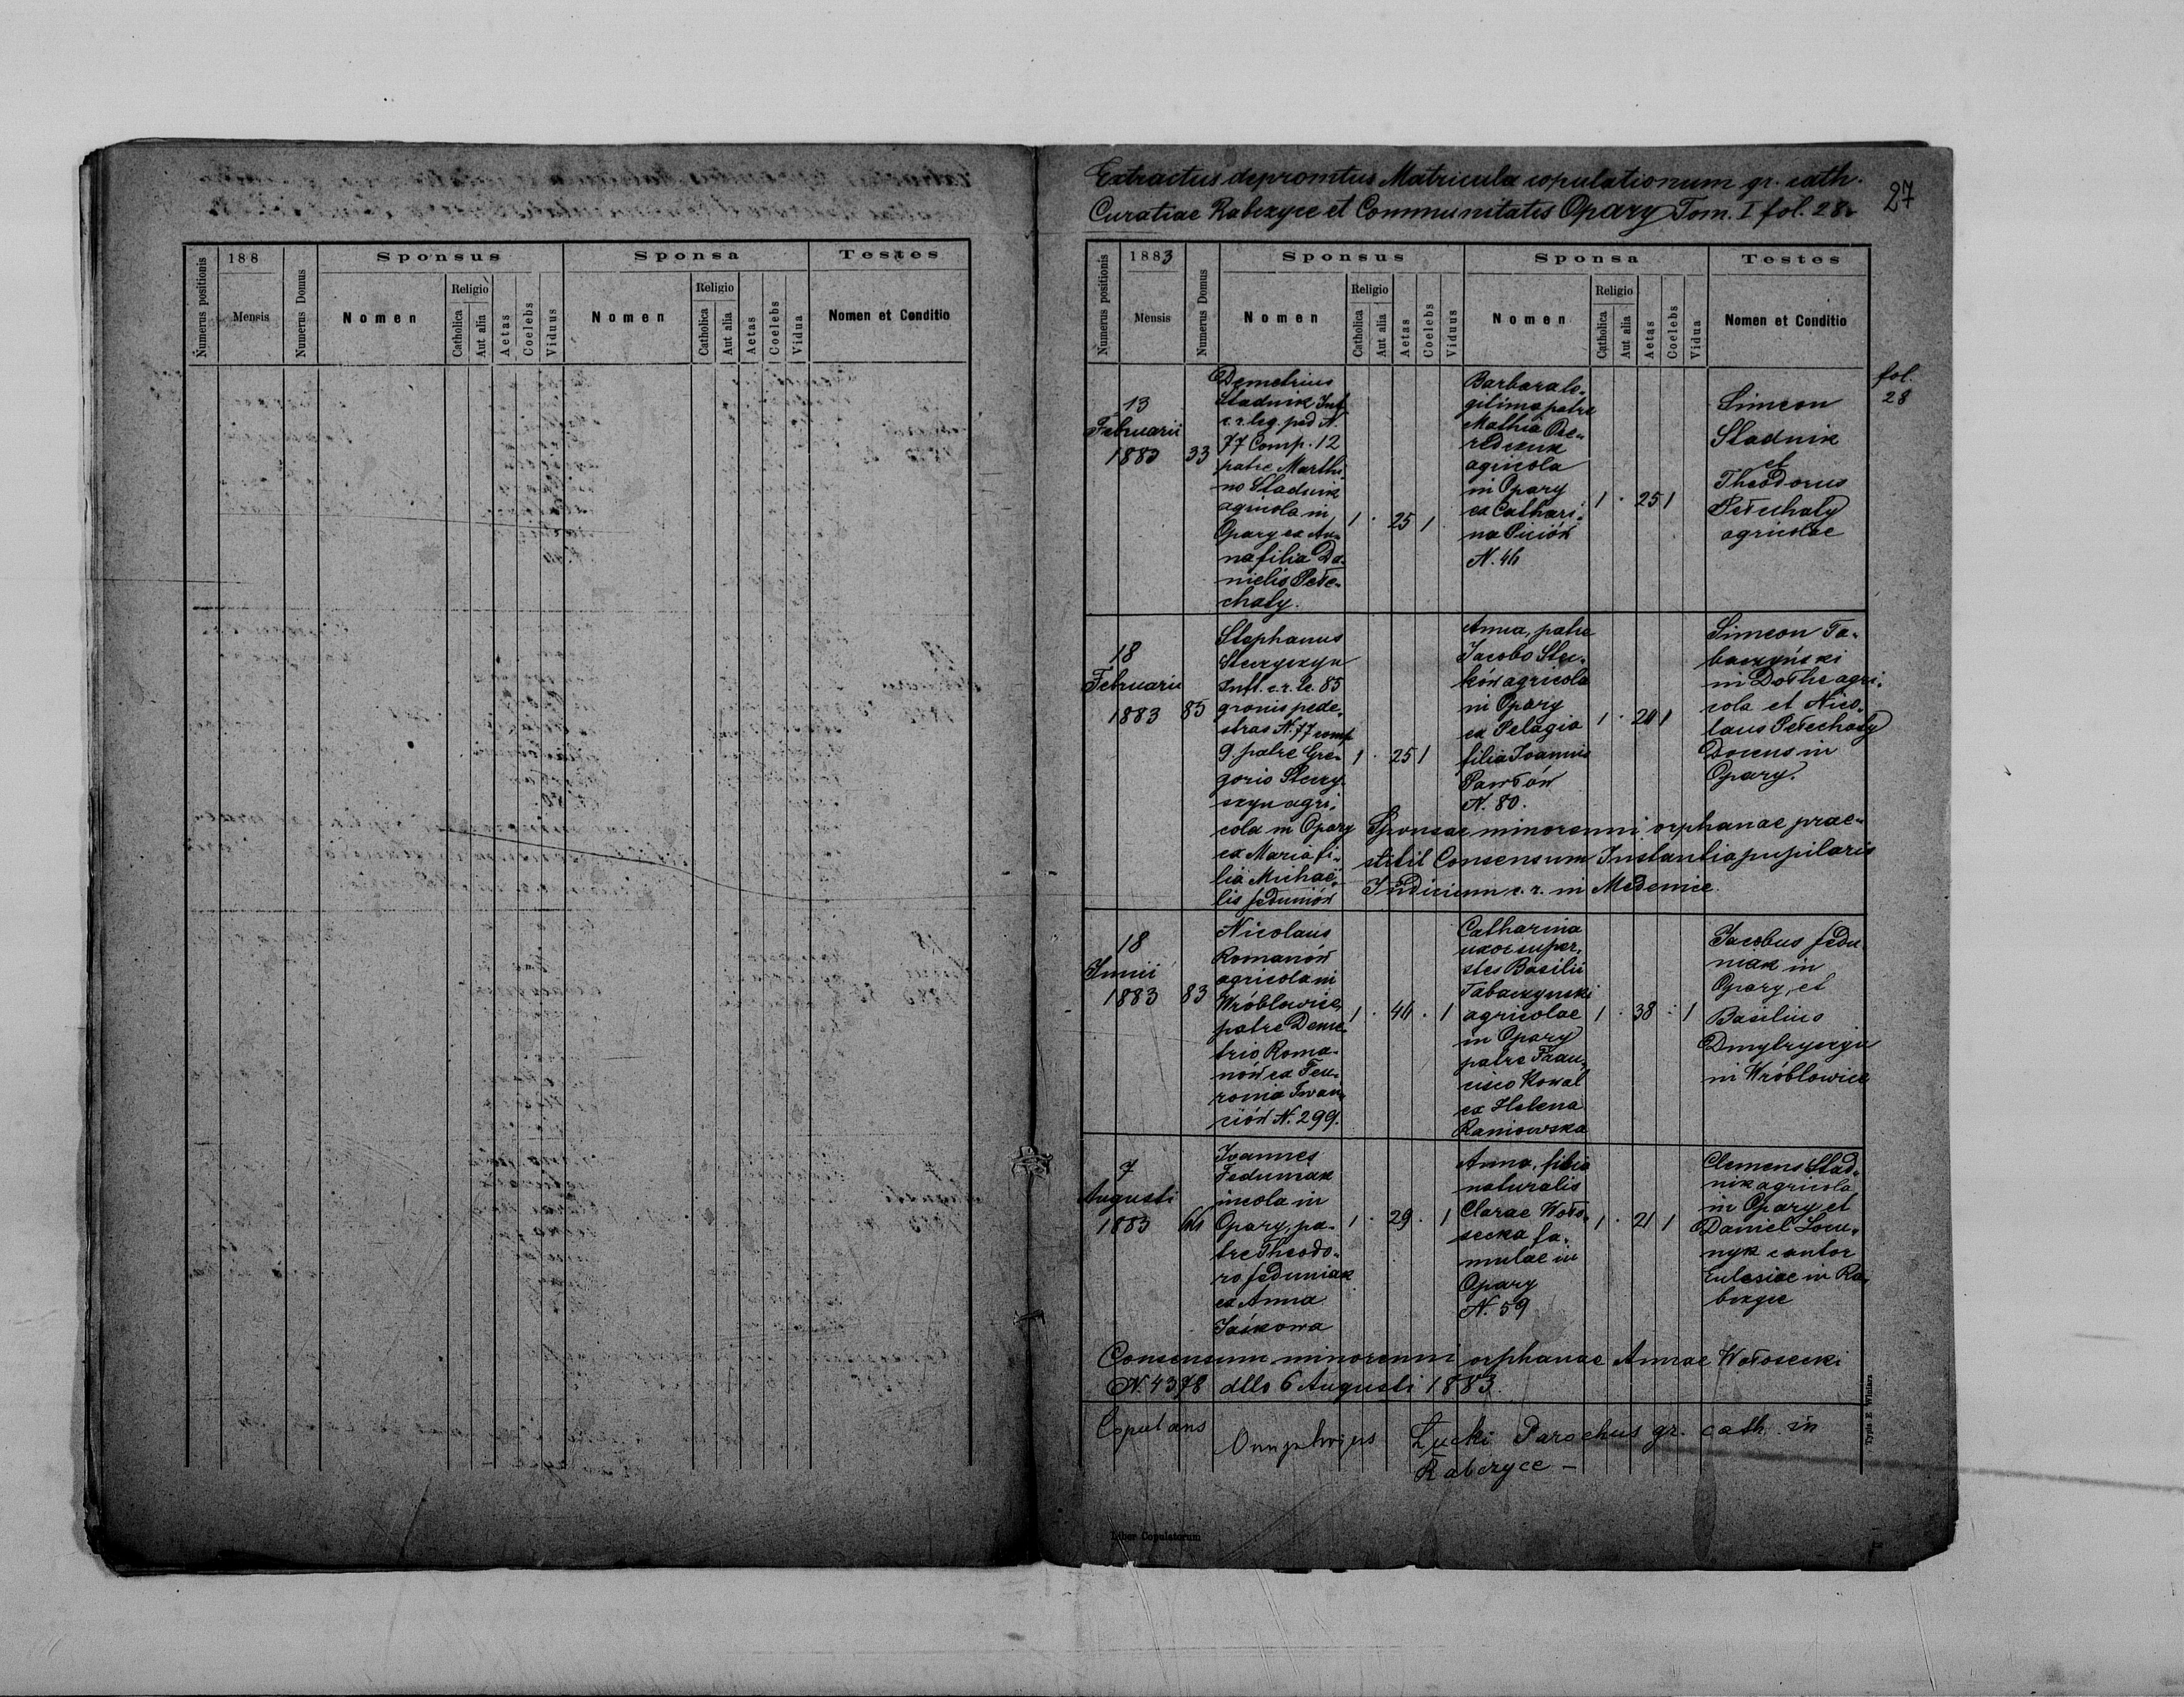 Numerus positionis
188
Mensis
Numerus Domus
Sponsus
Nomen
Religio
Catholica
Aut alia
Aetas
Coelebs
Viduus
Sponsa
Nomen
Religio
Catholica
Aut alia
Aetas
Coelebs
Vidua
Testes
Nomen et Conditio
Extractus depromtus Matricula copulationum gr. cath.
Curatiae Rabczyce et Communitatis Opary Tom. I fol. 28.
27
Numerus positionis
1883
Mensis
Numerus Domus
Sponsus
Nomen
Religio
Catholica
Aut alia
Aetas
Coelebs
Viduus
Sponsa
Nomen
Religio
Catholica
Aut alia
Aetas
Coelebs
Vidua
Testes
Nomen et Conditio
fol.
28
13
Februarii
1883
33
Demetrius
Stadnik Inf.
c. r. leg. ped N.
77 Comp. 12
patre Marthi
no Stadnik
agricola in
Opary ex An-
na filia Da-
nielis Pełe-
chaty.
1 . 25 1
Barbara le-
gitima patre
Mathia
agricola
in Opary
ex Cathari-
na
N. 46
1 . 25 1
Simeon
Stadnik
et
Theodorus
Pełechaty
agricolae
18
Februarii
1883
85
Stephanus
Steczyszyn
Inft. c. r. Le. 85
gronis pede-
stras N. 77 comp
9 patre Gre-
gorio Steczy-
szyn agri-
cola in Opary
ex Maria fi-
lia Michae-
lis feduniów
1 . 25 1
Anna, patre
Jacobo Stec-
ków agricola
in Opary
ex Pelagia
filia Joannis
Pawłów
N. 80.
1 . 20 1
Simeon Ta-
baczyński
in Dołhe agri-
cola et Nico-
laus Pełechaty
Docens in
Opary.
Sponsae minorenni orphanae prae-
stitit Consensum Instantia pupilaris
Judicium c. r. in Medenice.
18
Junii
1883
83
Nicolaus
Romanów
agricola in
Wróblowice,
patre Deme-
trio Roma-
nów ex Few-
ronia Iwan-
ciów N. 299.
1 . 46 . 1
Catharina
uxor super-
stes Basilii
Tabaczynski
agricolae
in Opary
patre Fran-
cisco Kowal
ex Helena
Raniowska
1 . 38 . 1
Jacobus fedu
niak in
Opary, et
Basilius
Dmytryszyn
in Wróblowice
7
Augusti
1883
66
Joannes
Feduniak
incola in
Opary, pa-
tre Theodo-
ro feduniak
ex Anna
Jaśkowa
1 . 29 . 1
Anna, filia
naturalis
Clarae Woło-
secka fa-
mulae in
Opary
N. 59
1 . 21 1
Clemens Stad-
nik agricola
in Opary et
Daniel
cantor
Eclesiae in Ra-
bczyce
Consensum minorenni orphanae Annae Wołosecki
N. 4378 dtto 6 Augusti 1883.
Copulans Onuphrius Łucki Parochus gr. cath. in
Rabczyce -
Typis E. Winiarz
Liber Copulatorum